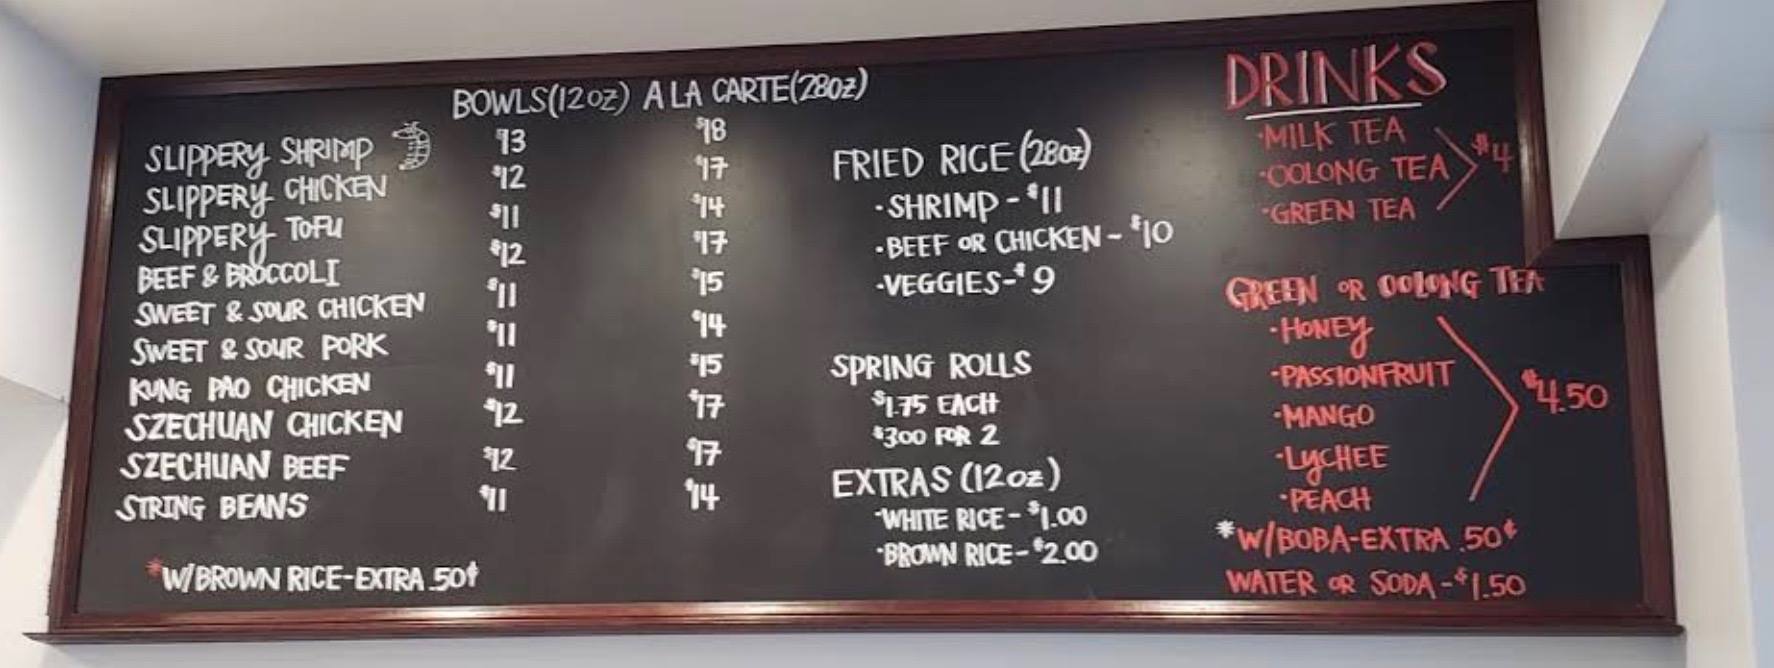 BOWLS(12oz) A LA CARTE(28oz)
SLIPPERY SHRIMP $13 $18
SLIPPERY CHICKEN $12 $17
SLIPPERY TOFU $11 $14
BEEF & BROCCOLI $12 $17
SWEET & SOUR CHICKEN $11 $15
SWEET & SOUR PORK $11 $14
KUNG PAO CHICKEN $11 $15
SZECHUAN CHICKEN $12 $17
SZECHUAN BEEF $12 $17
STRING BEANS $11 $14
*W/BROWN RICE-EXTRA .50¢
FRIED RICE (28oz)
·SHRIMP - $11
·BEEF OR CHICKEN - $10
·VEGGIES - $9
SPRING ROLLS
$1.75 EACH
$300 FOR 2
EXTRAS (12oz)
·WHITE RICE - $1.00
·BROWN RICE - $2.00
DRINKS
·MILK TEA
·OOLONG TEA $4
·GREEN TEA
GREEN OR OOLONG TEA
·HONEY
·PASSIONFRUIT
·MANGO $4.50
·LYCHEE
·PEACH
*W/BOBA-EXTRA .50¢
WATER OR SODA - $1.50